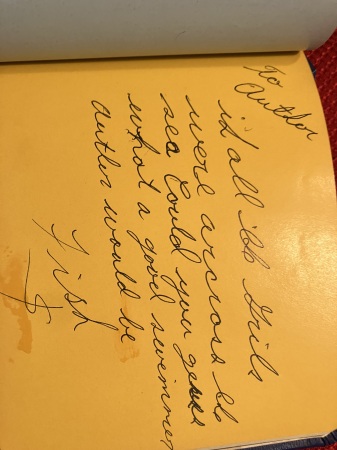 To
Auther
if all the Grils
were arcross the
sea Could you gess
what a good swimmer
auther would be
Fish